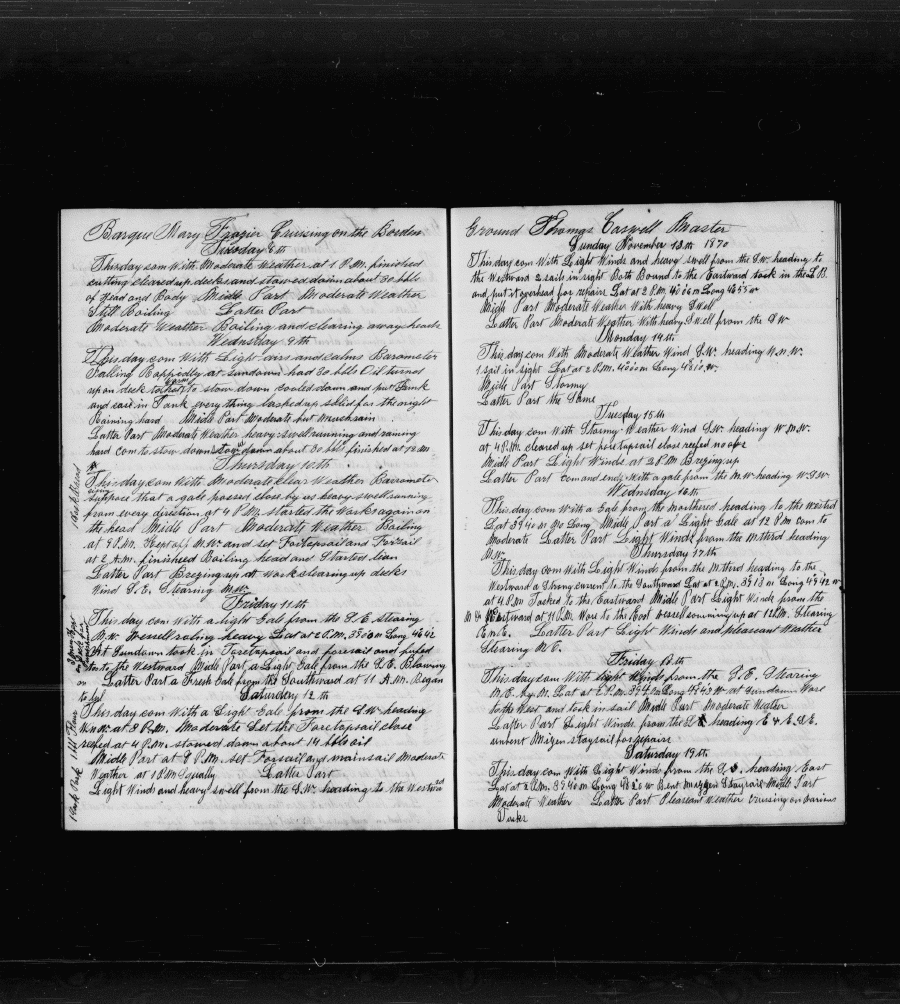 Barque Mary Frazier Cruising on the Borden
Tuesday 8th
This day com With Moderate Weather at 1 P.M. finished
cutting cleared up decks and stowed down about 30 bbls
of Head and Body Middle Part Moderate Weather
Still Boiling Latter Part
Moderate Weather Boiling and clearing away heads
Wednsday 9th
This day com With Light airs and calms Barometer
Falling Rappedly at Sundown had 30 bbls Oil turned
upon deck to stow down cooled down and put Junk
and oil in Tank everything lashed up solid for the night
Raining hard Middle Part Moderate but Much rain
Latter Part Moderate Weather heavy swell running and raining
hard com to stow down stow down about 30 bbls finished at 12 M
Thursday 10th
This day com With Moderate clear Weather Barometer
rising
suppose that a gale passed close by us heavy swell running
from every direction at 4 P.M. started the Works again on
the head Middle Part Moderate Weather Boiling
at 9 P.M. Kept off N.W. and set Foretopsail and Forsail
at 2 A.M. finished Boiling head and Started lean
Latter Part Brezing up at work clearing up decks
Wind S.E. Stearing N.W.
Friday 11th
This day com With a light Gale from the S.E. Stearing
N.W. Vessell roling heavy Lat at 2 P.M. 39 50 m Long 46 42
At Sundown took in Foretopsail and foresail and
to the Westward Middle Part a Light Gale from the S.E. Blowing
on Latter Part a Fresh Gale from the Southward at 11 A.M. Began
to
Saturday 12th
This day com With a Light Gale from the S.W. heading
W.N.W. at 3 P.M. Moderate Set the Foretopsail close
reefed at 4 P.M. stowed down about 14 bbls oil
Middle Part at 8 P.M. set Forsail and mainsail Moderate
Weather at 1 P.M. Squally Latter Part
Light Winds and heavy swell from the S.W. heading to the Westward
Ground Thomas Caswell Master
Sunday November 13th 1870
This day com With Light Winds and heavy swell from the S.W. heading to
the Westward 2 sail in sight Both Bound to the Eastward took in the L.B.
and put it overhead for repairs Lat at 2 P.M. 40 00 m Long 46 55 W
Middle Part Moderate Weather With heavy Swell
Latter Part Moderate Weather With heavy Swell from the S.W
Monday 14th
This day com With Moderate Weather Wind S.W. heading W.N.W.
1 sail in sight Lat at 2 P.M. 40 00 m Long 48 10 W.
Middle Part Stormy
Latter Part the Same
Tuesday 15th
This day com With Stormy Weather Wind S.W. heading W.N.W.
at 4 P.M. cleared up set foretopsail close reefed no obs
Middle Part Light Winds. at 2 P.M Brezing up
Latter Part com and ends With a gale from the N.W heading W.S.W
Wednesday 16th
This day com With a Gale from the northerd heading to the Westerd
Lat 39 40 m No Long Middle Part a Light Gale at 12 P.M com to
Moderate Latter Part Light Winds from theNtherd heading
N.W.
Thursday 17th
This day com With Light Winds from the Ntherd heading to the
Westward a Strong current to the Southward Lat at 2 P.M. 39 13 m Long 49 42 W
at 4 P.M Tacked to the Eastward Middle Part Light Winds from the
Westward at 11 P.M. Wore to the East Vessell comming up at 12 P.M. Stearing
E.N.E. Latter Part Light Winds and pleasant Weather
Stearing N.E.
Friday 18th
This day com With light Wind from the S.E. Stearing
N.E. by N. Lat at 2 P.M. 39 42 m Long 49 43 W at Sundown Wore
to the West and took in sail Middle Part Moderate Weather
Latter Part Light Winds from the heading E & E.S.E.
unbent Mizen staysail for repairs
Saturday 19th
This day com With Light Winds from the heading East
Lat at 2 P.M. 39 40 m Long 48 20 W Bent Mizzen Staysail Middle Part
Moderate Weather Latter Part Pleasant Weather Cruising on various
Tacks